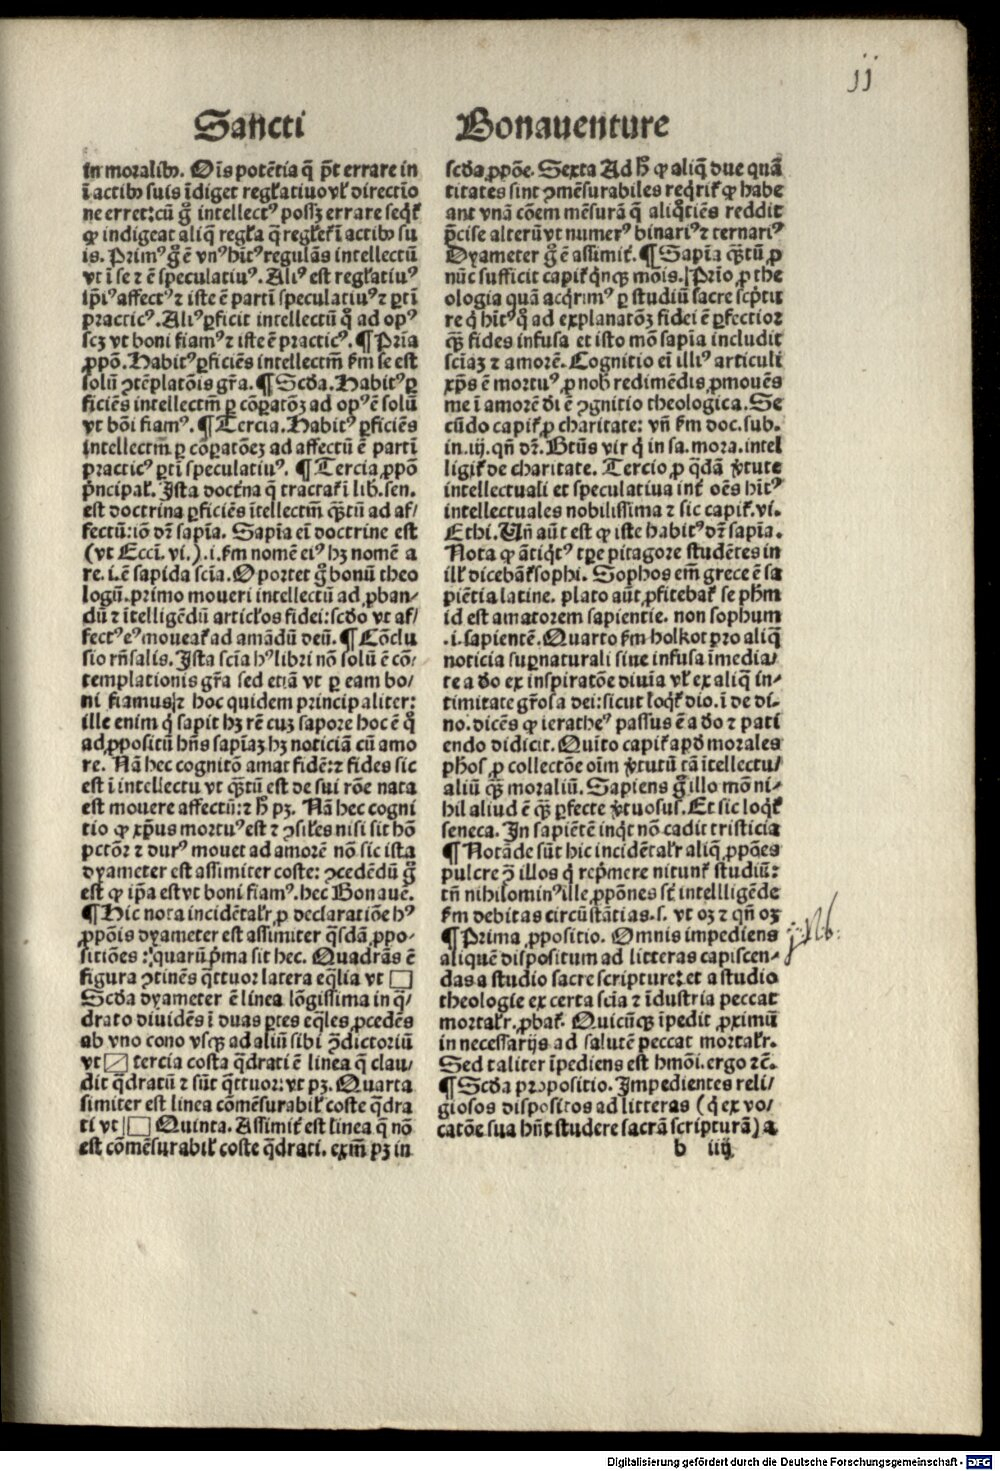 jj
Sancti Bonauenture
in moralibꝰ. Oīs potētia q̄ pōt errare in
ī actibꝰ suis īdiget regl̄atiuo vl̄ directīo
ne erret: cū g̊ intellectꝰ possꝫ errare seq̄t̄
ꝙ indigeat aliq̄ regl̄a q̄ regleī actibꝰ su
is. Primꝰ g̊ ē vnꝰ hītꝰ regulās intellectū
vt ī se ⁊ ē speculatiuꝰ. Aliꝰ est regl̄atiuꝰ
ip̄iꝰ affectꝰ ⁊ iste ē partī speculatiuꝰ ⁊ ꝑtī
practicꝰ. Aliꝰ ꝑficit intellectū q̊ ad opꝰ
scꝫ vt boni fiamꝰ ⁊ iste ē practicꝰ. ¶ Prīa
ꝓpō. Habitꝰ ꝑficiēs intellectm̄ ẜm se est
solū ↄtēplatōis gr̄a. ¶ Scd̄a. Habitꝰ ꝑ
ficiēs intellectm̄ ꝑ cōꝑatōꝫ ad opꝰ ē solū
vt bōi fiamꝰ. ¶ Tercia. Habitꝰ ꝑficiēs
intellectm̄ ꝑ cōꝑatōeꝫ ad affectū ē partī
practicꝰ ꝑtī speculatiuꝰ. ¶ Tercia ꝓpō
p̄ncipal̄. Ista doct̄na q̄ tractat̄ ī lib̄. sen.
est doctrina ꝑficiēs ītellectm̄ qꝫtū ad af/
fectū: iō dr̄ sapīa. Sapīa eī doctrine est
(vt Eccī. vi.) .i. ẜm nomē eiꝰ hꝫ nomē a
re. i. ē sapida scīa. Oportet g̊ bonū theo
logū. primo moueri intellectū ad ꝓban-
dū ⁊ ītelligēdū articl̄os fidei: scd̄o vt af/
fectꝰ eꝰ moueat̄ ad amādū deū. ¶ Cōclu
sio rn̄salis. Ista scīa hꝰ libri nō solū ē cō/
templationis gr̄a sed etiā vt ꝑ eam bo/
ni fiamus: ⁊ hoc quidem principaliter:
ille enim q̇ sapit hꝫ rē cuꝫ sapore hoc ē q̊
ad ꝓpositū hn̄s sapīaꝫ hꝫ noticiā cū amo
re. Nā hec cognitō amat fidē: ⁊ fides sic
est ī intellectu vt qꝫtū est de sui rōe nata
est mouere affectū: ⁊ h̄ pꝫ. Nā hec cogni
tio ꝙ xp̄us mortuꝰ est ⁊ ↄsil̄es nisi sit hō
pctōr ⁊ durꝰ mouet ad amorē nō sic ista
dyameter est assimiter coste: ↄcedēdū g̊
est ꝙ ip̄a est vt boni fiamꝰ. hec Bonauē.
¶ Hic nota incidētal̄r ꝓ declaratiōe hꝰ
ꝓpōis dyameter est assimiter q̄sdā ꝓpo-
sitiōes: quarū p̄ma sit hec. Quadrās ē
figura ↄtinēs q̄ttuor latera eq̄lia vt □
Scd̄a dyameter ē linea lōgissima in q̄/
drato diuidēs ī duas ꝑtes eq̄les ꝓcedēs
ab vno cono vsqꝫ ad aliū sibi ↄ̄dictoriū
vt ⧄ tercia costa q̄drati ē linea q̄ clau/
dit q̄dratū ⁊ sūt q̄ttuor: vt pꝫ. Quarta
simiter est linea cōmēsurabil̄ coste q̄dra
ti vt |□ Quinta. Assimit̄ est linea q̄ nō
est cōmēsurabil̄ coste q̄drati. exm̄ pꝫ in
scd̄a ꝓpōe. Sexta Ad h̄ ꝙ aliq̄ due quā
titates sint ↄmēsurabiles reqrit̄ ꝙ habe
ant vnā cōem mēsurā q̄ aliq̊tiēs reddit
p̄cise alterū vt numerꝰ binariꝰ ⁊ ternariꝰ
Dyameter g̊ ē assimit̄. ¶ Sapīa qꝫtū ꝓ
nūc sufficit capit̄ q̇nqꝫ mōis. Prīo ꝓ the
ologia quā acq̇rimꝰ ꝑ studiū sacre scp̄tu
re q̇ hītꝰ q̊ ad explanatōꝫ fidei ē ꝑfectior
qꝫ fides infusa et isto mō sapīa includit
scīaꝫ ⁊ amorē. Cognitio eī illiꝰ articuli
xp̄s ē mortuꝰ ꝓ nob̄ redimēdis ꝓmouēs
me ī amorē dī ē ↄgnitio theologica. Se
cūdo capit̄ ꝓ charitate: vn̄ ẜm doc. sub.
in. iij. qn̄ dr̄. Btūs vir q̇ in sa. mora. intel
ligit̄ de charitate. Tercio ꝓ q̄dā v̄tute
intellectuali et speculatiua int̄ oēs hītꝰ
intellectuales nobilissima ⁊ sic capit̄. vi.
Ethi. Vn̄ aūt est ꝙ iste habitꝰ dr̄ sapīa.
Nota ꝙ ātiq̇tꝰ tꝑe pitagore studētes in
ill̄ dicebāt̄ sophi. Sophos em̄ grece ē sa
piētia latine. plato aūt ꝓfitebat̄ se ph̄m
id est amatorem sapientie. non sophum
.i. sapientē. Quarto ẜm holkot ꝓro aliq̄
noticia suꝑnaturali siue infusa īmedia/
te a deo ex inspiratōe diuīa vl̄ ex aliq̄ in-
timitate gr̄osa dei: sicut loq̄t̄ dio. ī de di-
no. dicēs ꝙ ieratheꝰ passus ē a deo ⁊ pati
endo didicit. Quīto capit̄ apd̄ morales
ph̄os ꝓ collectōe oīm v̄tutū tā ītellectu/
aliū qꝫ moraliū. Sapiens g̊ illo mō ni-
hil aliud ē qꝫ ꝑfecte v̄tuosus. Et sic loq̄t̄
seneca. In sapiētē inq̇t nō cadit tristicia
¶ Notāde sūt hic incidētal̄r aliq̄ ꝓpōes
pulcre ↄ̄ illos q̇ rep̄mere nitunt̄ studiū:
tn̄ nihilominꝰ ille ꝓpōnes sīt intelligēde
ẜm debitas circūstātias. s. vt oꝫ ⁊ qn̄ oꝫ
¶ Prima ꝓpositio. Omnis impediens
aliquē dispositum ad litteras capiscen-
das a studio sacre scripture: et a studio
theologie ex certa scīa ⁊ īdustria peccat
mortal̄r. ꝓbat̄. Quicūqꝫ īpedit ꝓximū
in necessarijs ad salutē peccat mortal̄r.
Sed taliter īpediens est hmōi. ergo ⁊ē.
¶ Scd̄a propositio. Impedientes reli/
giosos dispositos ad litteras (q̇ ex vo/
catōe sua hn̄t studere sacrā scripturā) a
b iiij
Nb: